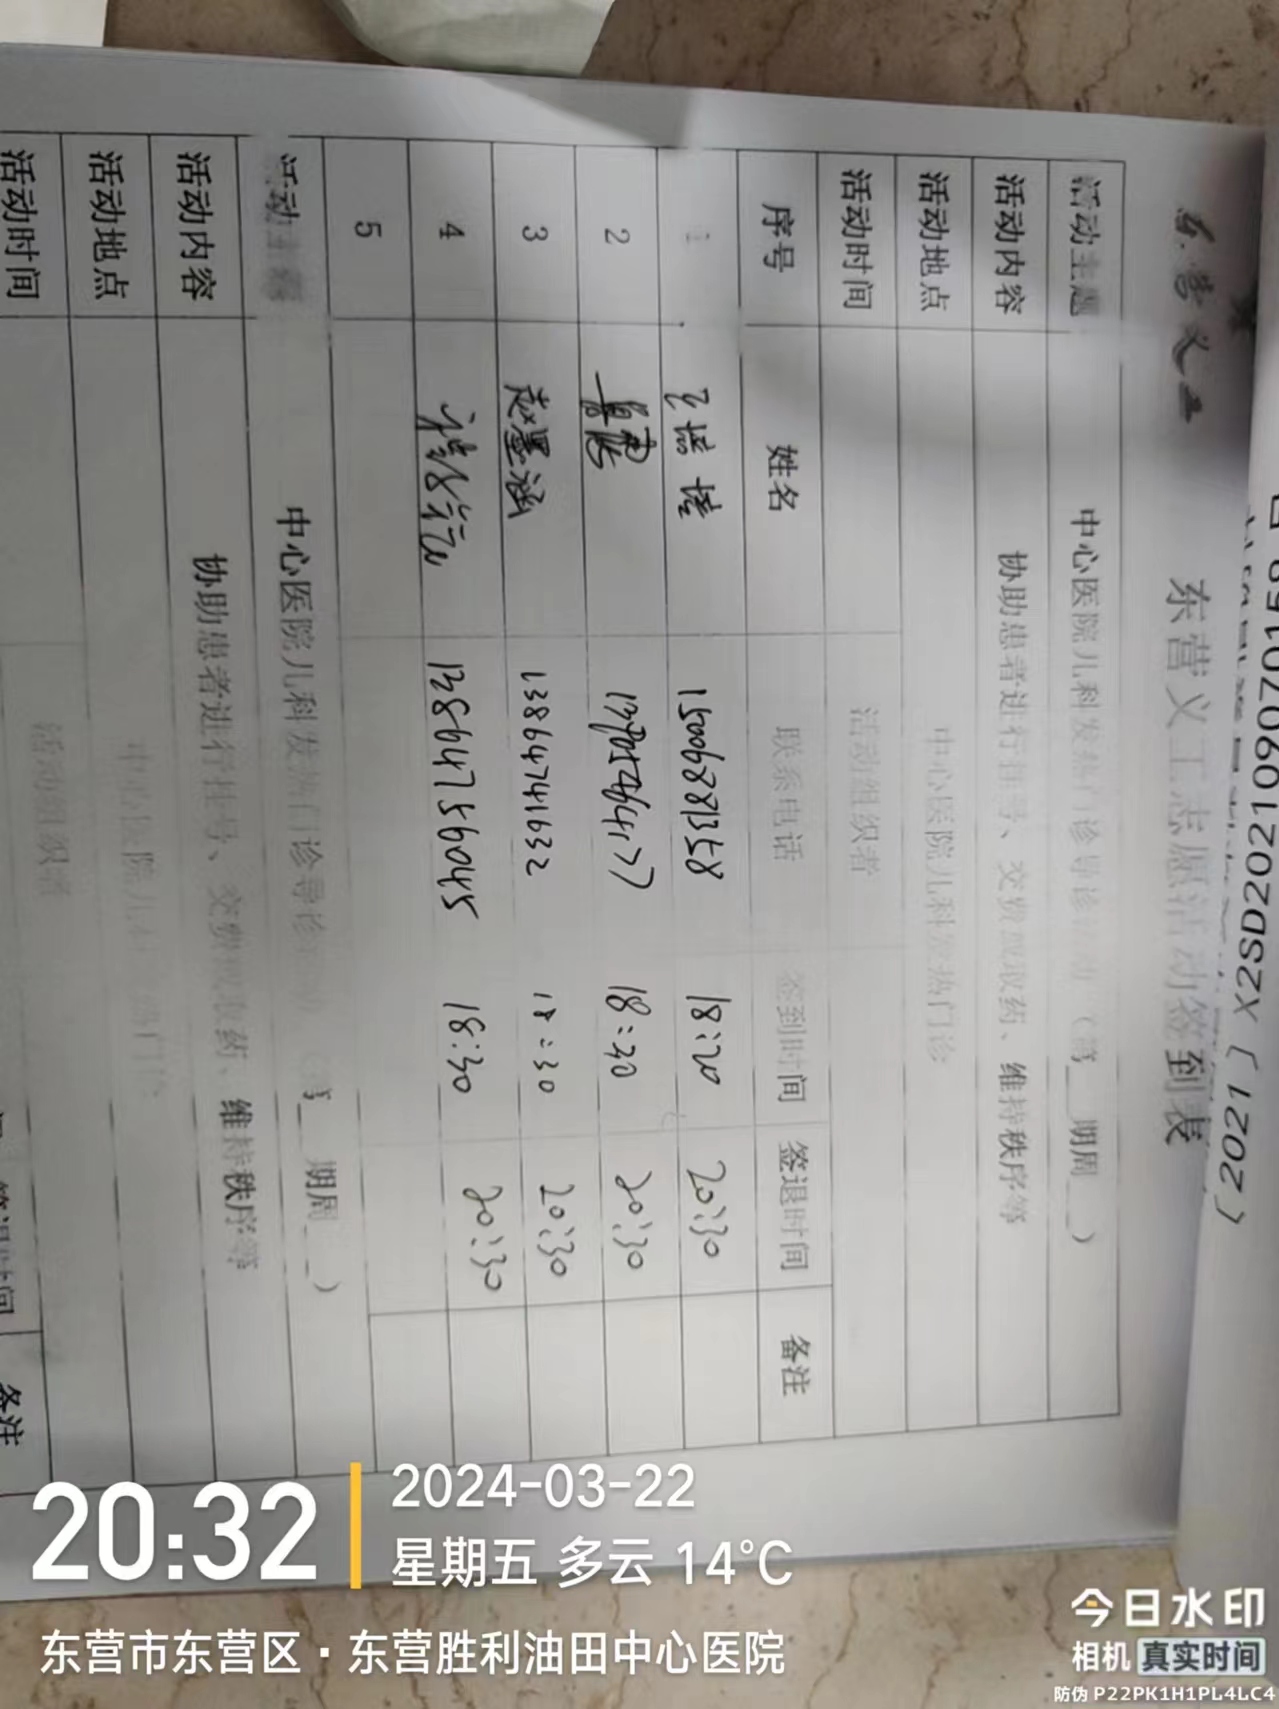 〔2021〕X2SD20120609070158号
东营义工
东营义工志愿活动签到表
活动主题 中心医院儿科发热门诊导诊活动（第__期周__）
活动内容 协助患者进行挂号、交费或取药、维持秩序等
活动地点 中心医院儿科发热门诊
活动时间 活动组织者
序号 姓名 联系电话 签到时间 签退时间 备注
1 18:20 20:30
2 18:30 20:30
3 赵墨涵 13864741632 18:30 20:30
4 13864756045 18:30 20:30
5
活动主题 中心医院儿科发热门诊导诊活动（第__期周__）
活动内容 协助患者进行挂号、交费或取药、维持秩序等
活动地点 中心医院儿科发热门诊
活动时间 活动组织者
签退时间 备注
20:32
2024-03-22
星期五 多云 14°C
东营市东营区·东营胜利油田中心医院
今日水印
相机 真实时间
防伪 P22PK1H1PL4LC4